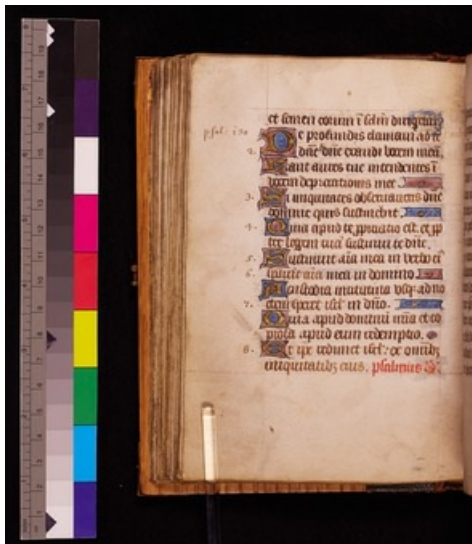 et semen eorum ī sclm dirigetur
psal: 130
De profundis clamavi ad te
2. dne dne exaudi vocem meā
fiant aures tue intendentes ī
vocem deprecationis mee
3. Si iniquitates observaveris dne
domine quis sustinebit
4. Quia apud te propitiatio est et p
pter legem tuā sustinui te dne.
5. Sustinuit aīa mea in verbo eī
6. speravit aīa mea in domino
A custodia matutina usq; ad no
7. ctem speret isrl in dno.
Quia apud dominū mīa et co
piosa apud eum redemptio.
8. Et ipe redimet isrl: ex omnib;
iniquitatib; eius. psalmus